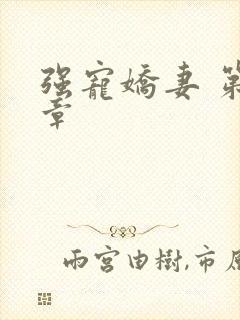 强寵嬌妻 第
章
雨宮由樹,市原